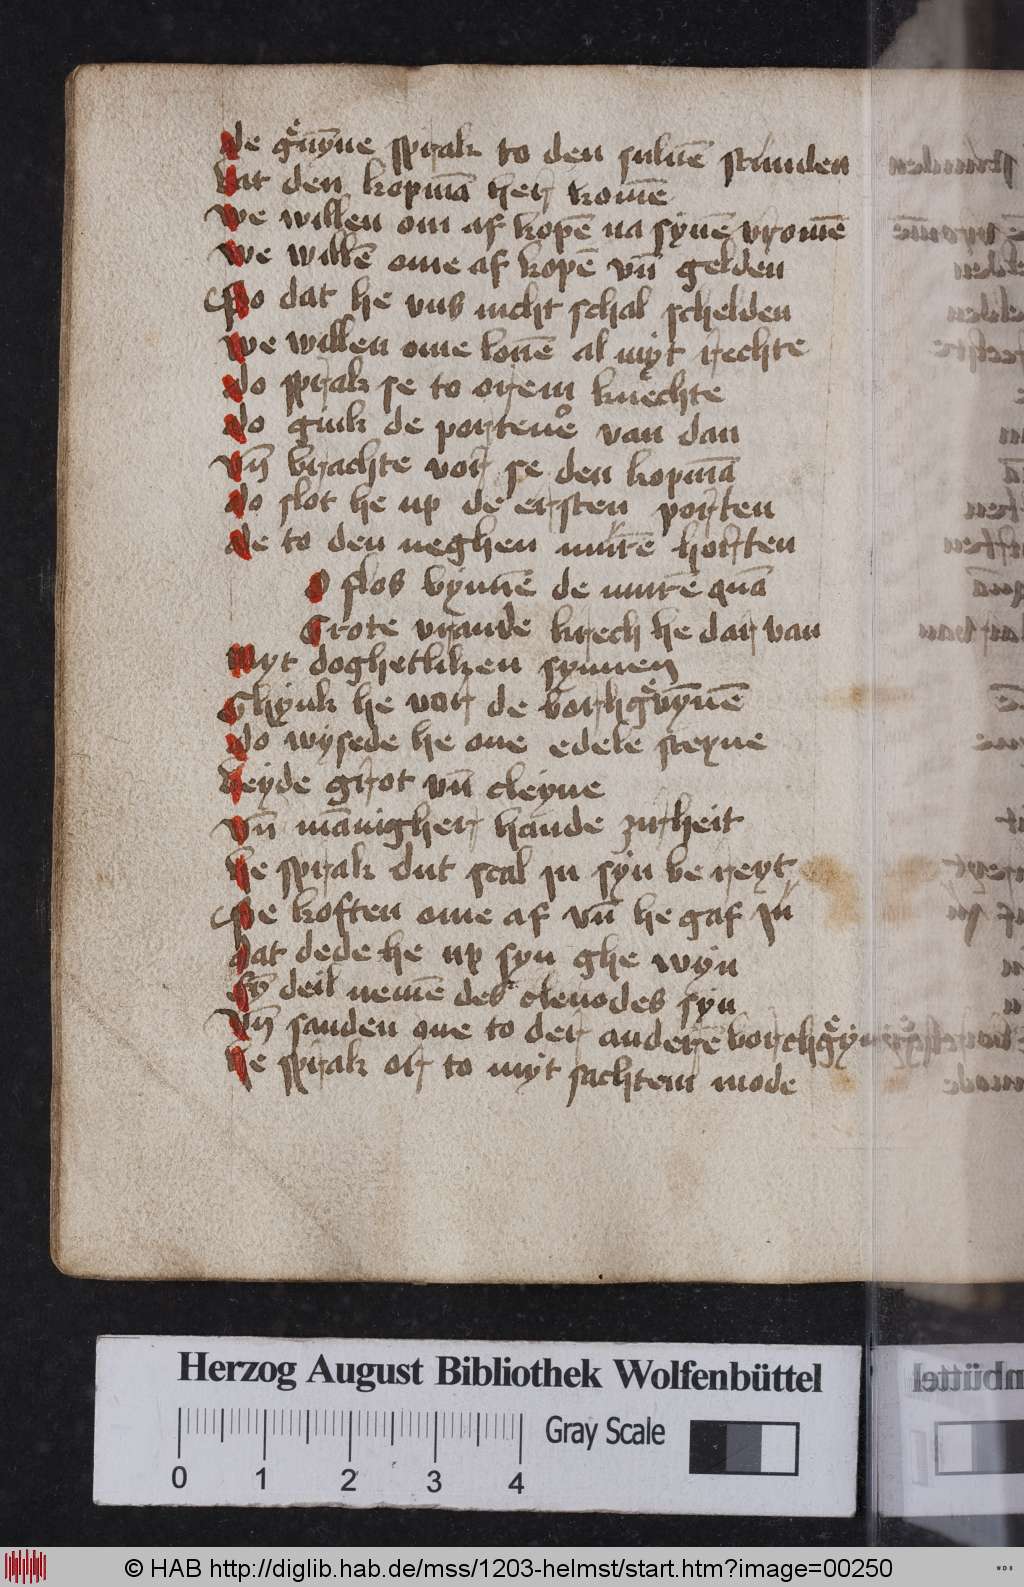 de gͤuỹne sprak to den suluē stunden
Lat den kopmā her komē
we willen om af kopē na synē vromē
we willē ome af kopē vn̄ gelden
So dat he vns nicht schal schelden
we willen ome lonē al myt rechte
do sprak se to orem knechte
do gink de portenͤe van dan
vn̄ brachte vor se den kopmā
do slot he up de ersten porten
de to den neghen murē horten
O slos bynnē de murē quā
Grote vrande krech he dar van
Myt doghetliken synnen
Ghynk he vor de borhgͤvynē
do wysede he one edele steyne
beyde grot vn̄ cleyne
vn̄ mānigher hande zirheit
he sprak dut scal in syn be reyt
Se koften ome af vn̄ he gaf in
dat dede he up syn ghe wyn
Eȳ deil nemē des clenodes syn
vn̄ sanden one to der anderē borchgͤyn
he sprak or to myt sachtem mode
Herzog August Bibliothek Wolfenbüttel
Gray Scale
0 1 2 3 4
© HAB http://diglib.hab.de/mss/1203-helmst/start.htm?image=00250